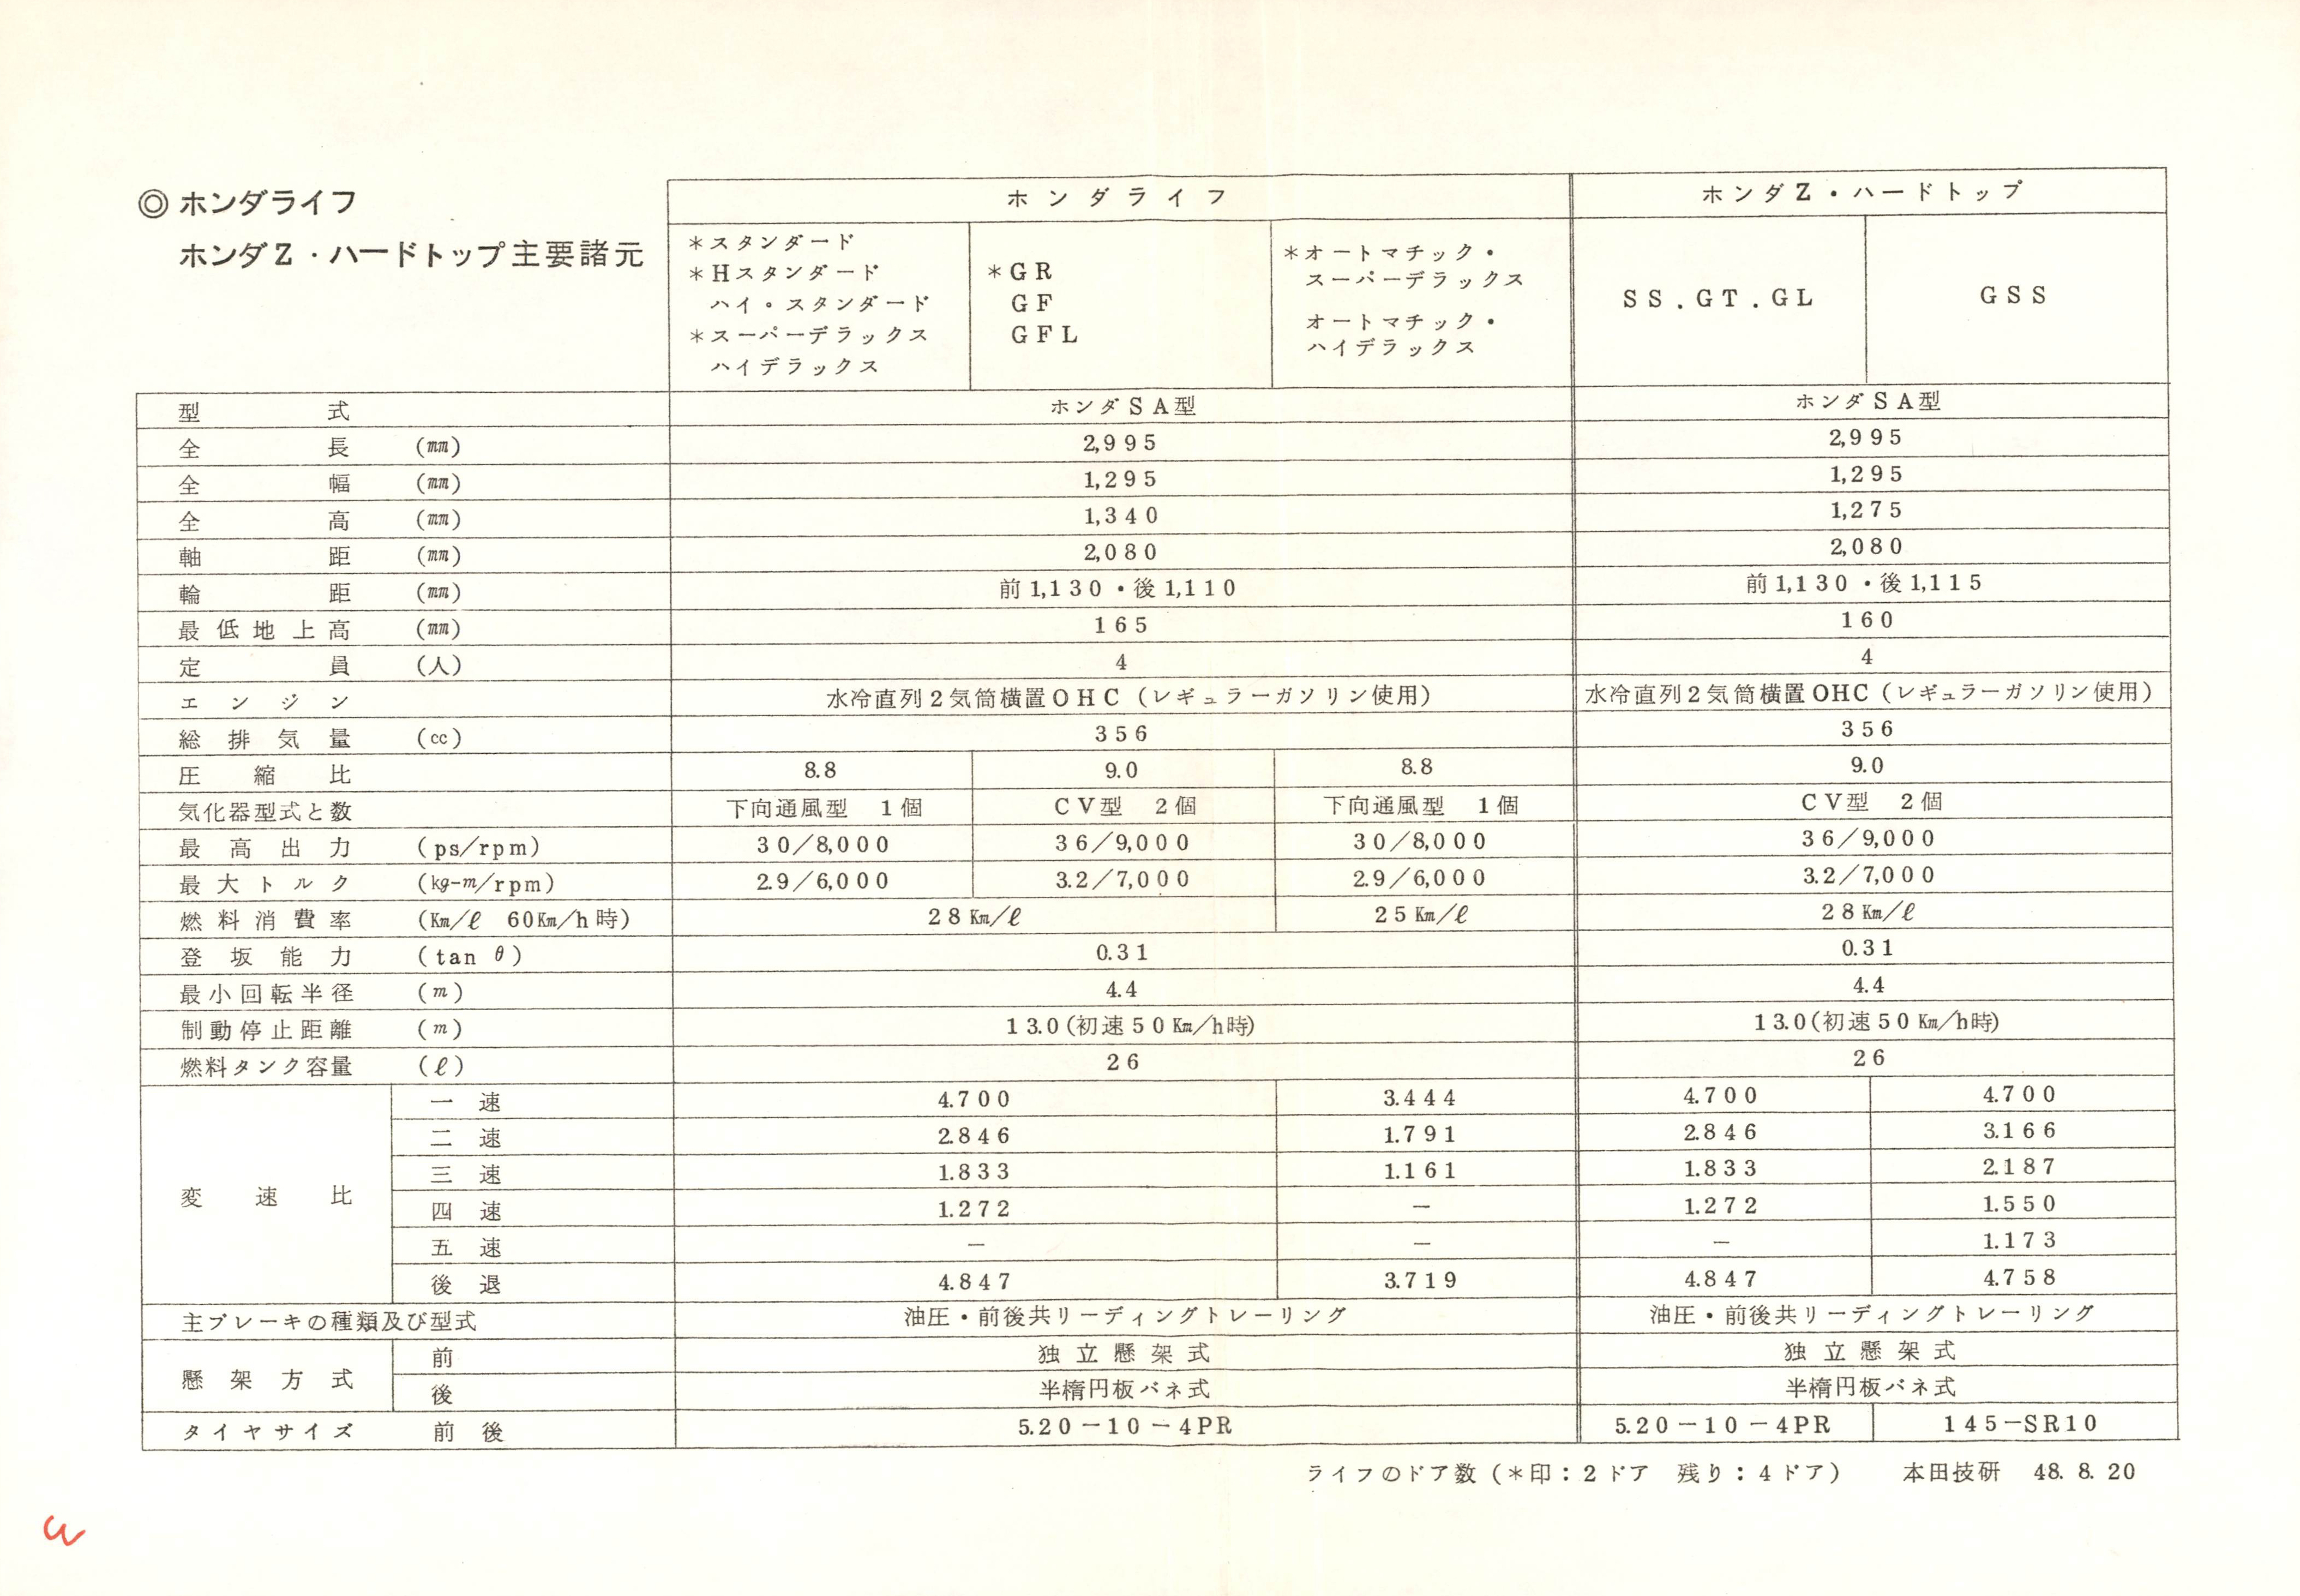 ◎ ホンダライフ
ホンダZ・ハードトップ主要諸元
ホンダライフ ホンダZ・ハードトップ
＊スタンダード
＊Hスタンダード
ハイ・スタンダード
＊スーパーデラックス
ハイデラックス
＊GR
GF
GFL
＊オートマチック・
スーパーデラックス
オートマチック・
ハイデラックス
SS.GT.GL GSS
型式 ホンダSA型 ホンダSA型
全長 (mm) 2,995 2,995
全幅 (mm) 1,295 1,295
全高 (mm) 1,340 1,275
軸距 (mm) 2,080 2,080
輪距 (mm) 前1,130・後1,110 前1,130・後1,115
最低地上高 (mm) 165 160
定員 (人) 4 4
エンジン 水冷直列2気筒横置OHC（レギュラーガソリン使用） 水冷直列2気筒横置OHC（レギュラーガソリン使用）
総排気量 (cc) 356 356
圧縮比 8.8 9.0 8.8 9.0
気化器型式と数 下向通風型 1個 CV型 2個 下向通風型 1個 CV型 2個
最高出力 (ps/rpm) 30/8,000 36/9,000 30/8,000 36/9,000
最大トルク (kg-m/rpm) 2.9/6,000 3.2/7,000 2.9/6,000 3.2/7,000
燃料消費率 (Km/ℓ 60Km/h時) 28Km/ℓ 25Km/ℓ 28Km/ℓ
登坂能力 (tan θ) 0.31 0.31
最小回転半径 (m) 4.4 4.4
制動停止距離 (m) 13.0(初速50Km/h時) 13.0(初速50Km/h時)
燃料タンク容量 (ℓ) 26 26
変速比
一速 4.700 3.444 4.700 4.700
二速 2.846 1.791 2.846 3.166
三速 1.833 1.161 1.833 2.187
四速 1.272 − 1.272 1.550
五速 − − − 1.173
後退 4.847 3.719 4.847 4.758
主ブレーキの種類及び型式 油圧・前後共リーディングトレーリング 油圧・前後共リーディングトレーリング
懸架方式
前 独立懸架式 独立懸架式
後 半楕円板バネ式 半楕円板バネ式
タイヤサイズ 前後 5.20−10−4PR 5.20−10−4PR 145−SR10
ライフのドア数（＊印：2ドア 残り：4ドア） 本田技研 48.8.20